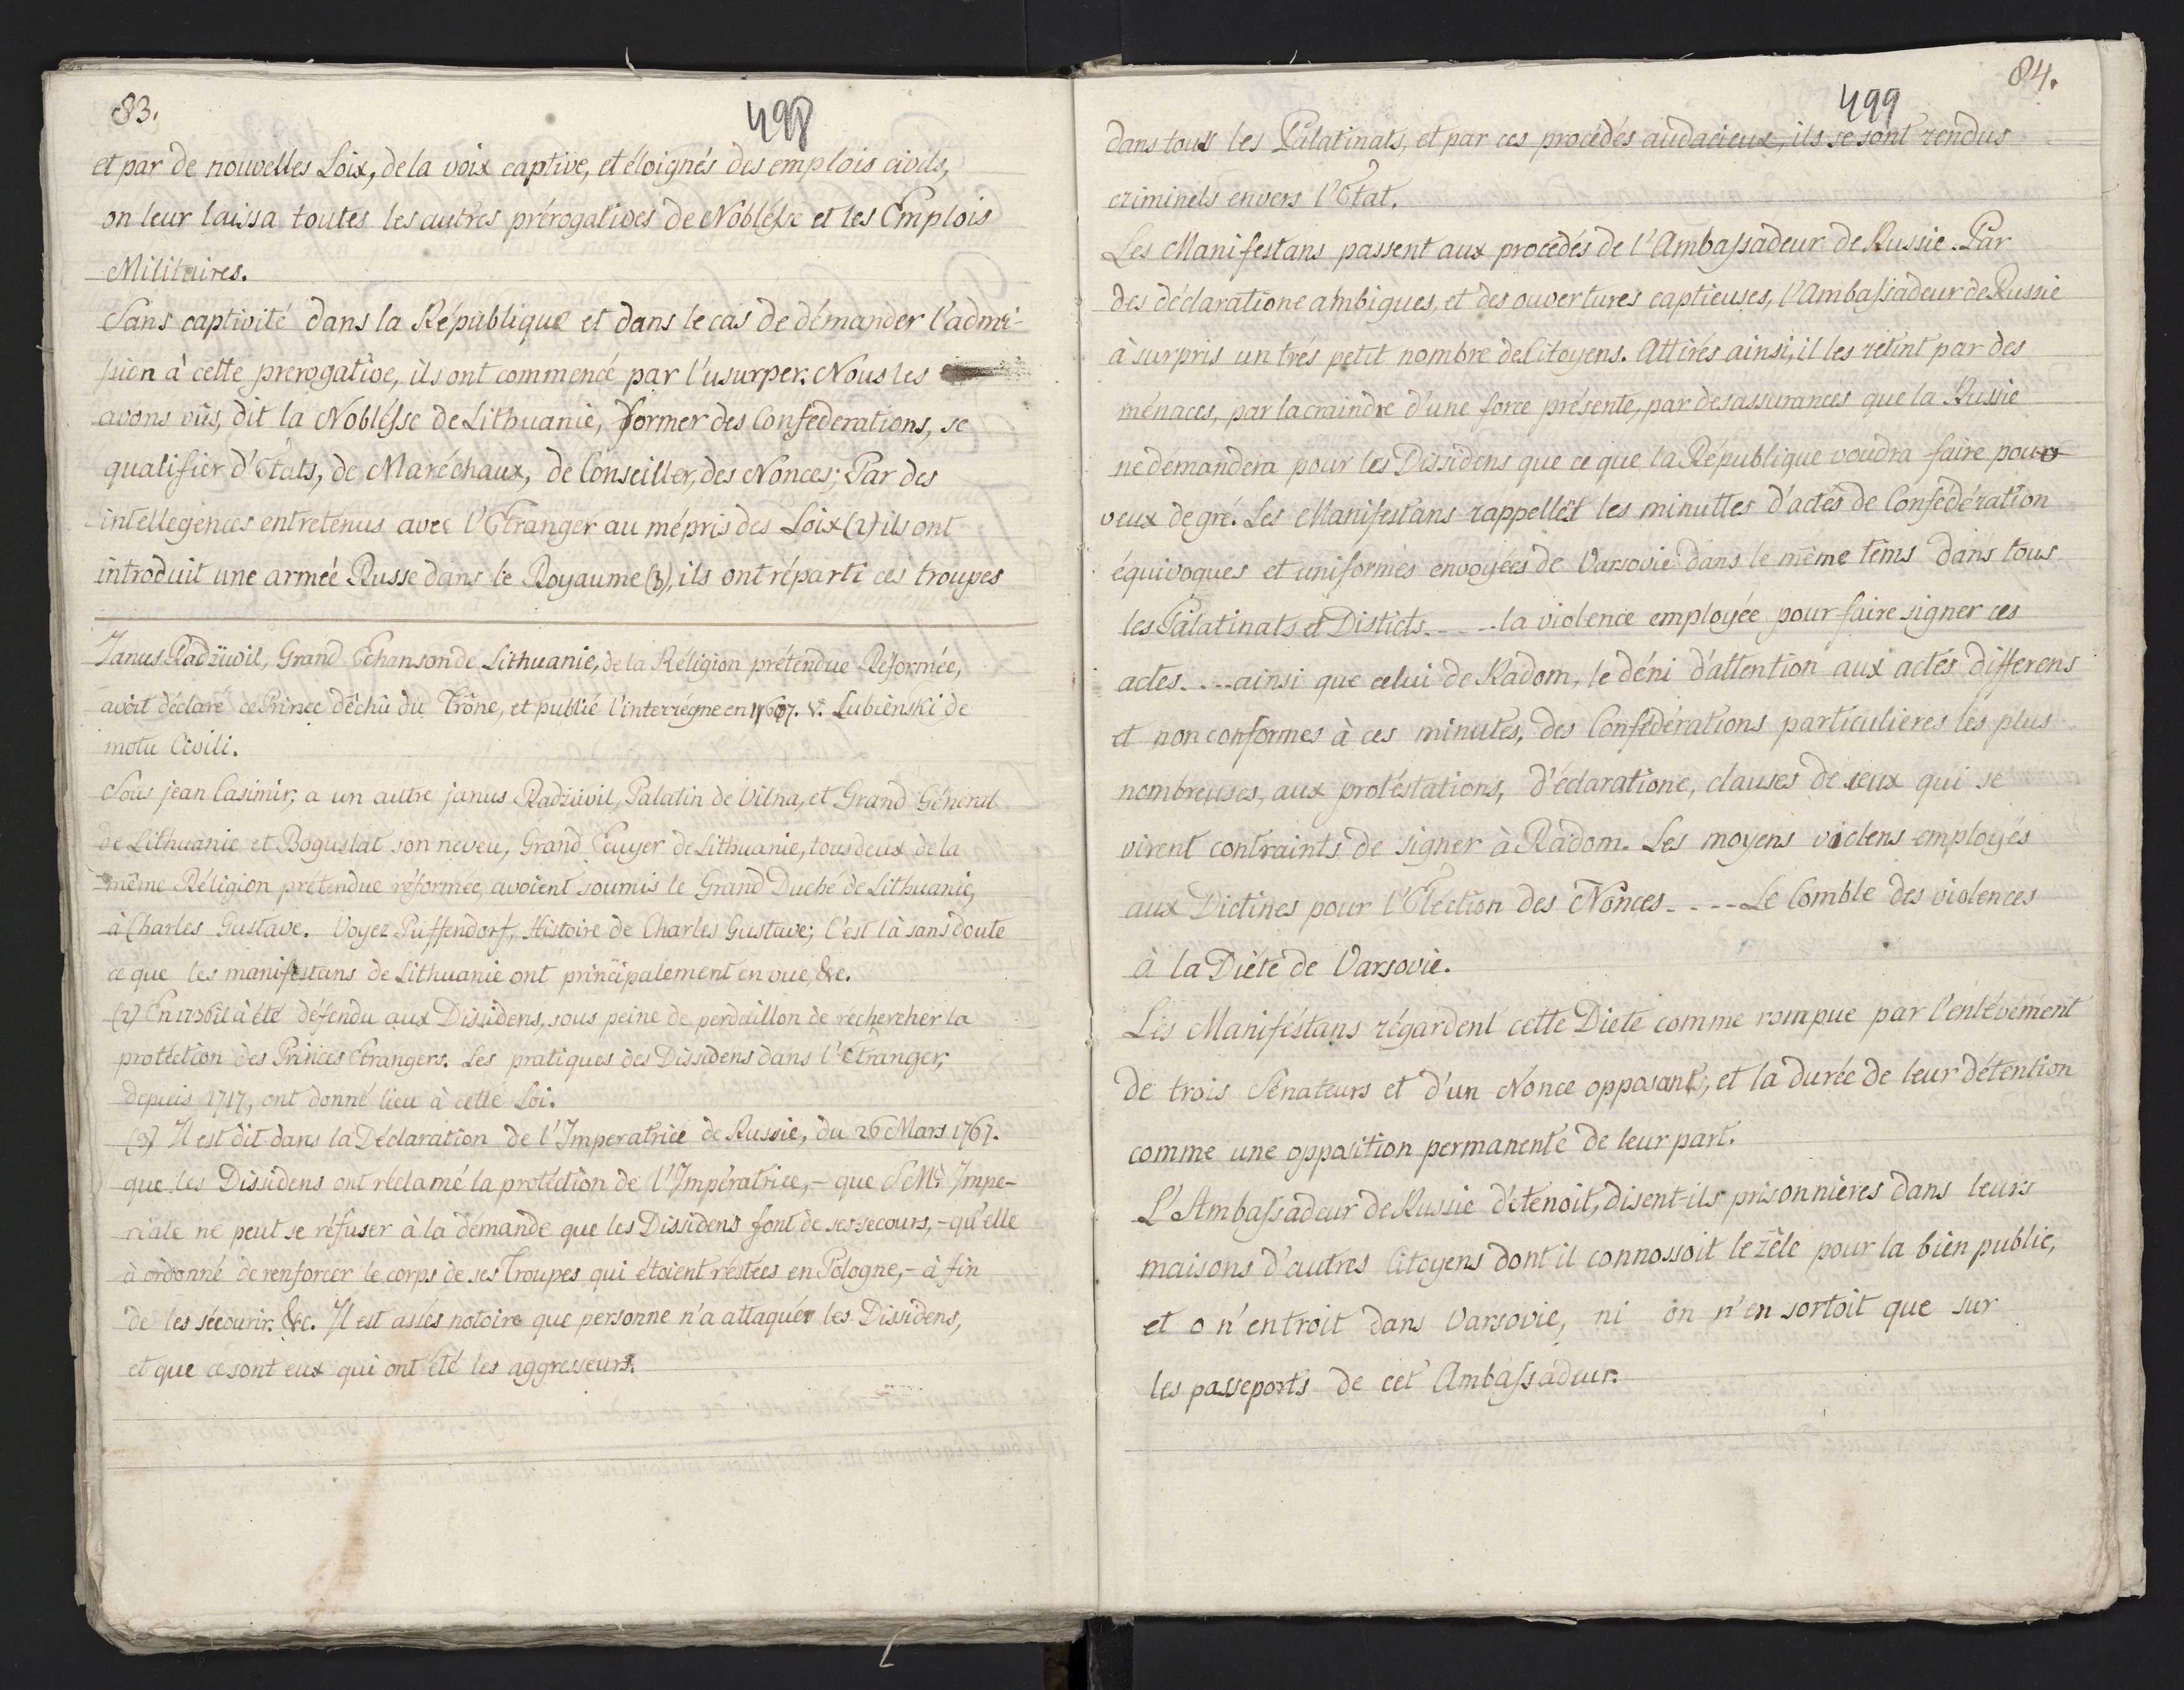 83.
498
et par de nouvelles Loix, de la voix captive, et éloignés des emplois civils,
on leur laissa toutes les autres prérogatives de Nobléſse et les Emplois
Militaires.
Sans captivité dans la République et dans le cas de démander l'admi-
ſsion à cette prerogative, ils ont commencé par l'usurper. Nous les
avons vûs, dit la Nobléſse de Lithuanie, former des Confederations, se
qualifier d'Etats, de Maréchaux, de Conseiller, des Nonces; Par des
intellegences entretenus avec l'Etranger au mépris des Loix (2) ils ont
introduit une armeé Russe dans le Royaume (3), ils ont réparti ces troupes
Janus Radziivil, Grand Echanson de Lithuanie, de la Réligion prétendue Réformée,
avoit déclaré ce Prince dêchû du Trône, et publié l'interrégne en 1607. V. Lubienski de
motu Civili.
Sous jean Casimir, a un autre janus Radziivil, Palatin de Vilna, et Grand Géneral
de Lithuanie et Boguslat son neveu, Grand Ecuyer de Lithuanie, tous deux de la
même Réligion prétendue réformée, avoient soumis le Grand Duché de Lithuanie,
à Charles Gustave. Voyez Puffendorf, Histoire de Charles Gustave; C'est là sans doute
ce que les manifestans de Lithuanie ont principalement en vue, &c.
(2) En 1736 il à été défendu aux Dissidens, sous peine de perduillon de rechercher la
protéction des Princes Etrangers. Les pratiques des Dissidens dans l'Etranger,
depuis 1717, ont donné lieu à cette Loi.
(3) Il est dit dans la Déclaration de l'Imperatrice de Russie, du 26 Mars 1767.
que les Dissidens ont réclamé la protéction de l'Impératrice, - que S. M. Impe-
riale ne peut se réfuser à la démande que les Dissidens font de ses secours, - qu'elle
à ordonné de renforcer le corps de ses Troupes qui étoient réstées en Pologne, - à fin
de les sécourir. &c. Il est assés notoire que personne n'a attaquér les Dissidens,
et que ce sont eux qui ont été les aggresseurs.
84.
499
dans tous les Palatinats, et par ces procédés audacieux, ils se sont rendus
criminels envers l'Etat.
Les Manifestans passent aux procédés de l'Ambaſsadeur de Russie. Par
des déclaratione ambigues, et des ouvertures captieuses, l'Ambaſsadeur de Russie
à surpris un trés petit nombre de Citoyens. Attirés ainsi, il les rétint par des
ménaces, par la craindre d'une force présente, par des assurances que la Russie
ne demandera pour les Dissidens que ce que la République voudra faire pour
veux de gré. Les Manifestans rappellét les minuttes d'actes de Confédération
équivoques et uniformes envoyées de Varsovie dans le même têms dans tous
les Palatinats et Disticts - - - - la violence employée pour faire signer ces
actes - - - - ainsi que celui de Radom, le déni d'attention aux actes differens
et non conformes à ces minutes, des Confédérations particulieres les plus
nombreuses, aux protéstations, d'éclaratione, clauses de ceux qui se
virent contraints de signer à Radom. Les moyens violens employés
aux Dietines pour l'Eléction des Nonces - - - - Le Comble des violences
à la Diéte de Varsovie.
Les Manifestans régardent cette Diete comme rompue par l'enlévement
de trois Sénateurs et d'un Nonce opposant, et la durée de leur détention
comme une opposition permanente de leur part.
L'Ambaſsadeur de Russie détenoit, disent-ils prisonnières dans leurs
maisons d'autres Citoyens dont il connossoit le zêle pour la bien public,
et o n'entroit dans Varsovie, ni on n'en sortoit que sur
les passeports de cet Ambaſsadeur.